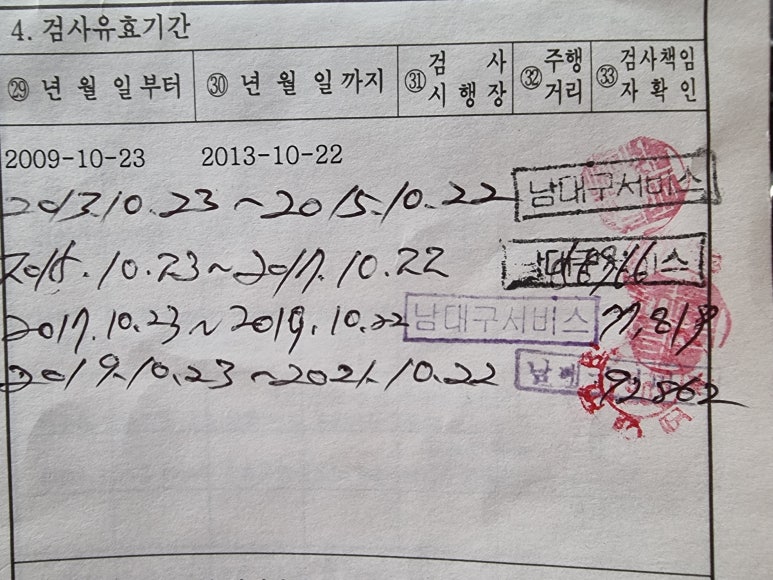 4. 검사유효기간
㉙ 년 월 일부터 ㉚ 년 월 일까지 ㉛ 검 사 시 행 장 ㉜ 주행 거리 ㉝ 검사책임 자 확 인
2009-10-23 2013-10-22
2013.10.23 ~ 2015.10.22 남대구서비스
2015.10.23 ~ 2017.10.22
2017.10.23 ~ 2019.10.22 남대구서비스 77,819
2019.10.23 ~ 2021.10.22 92862